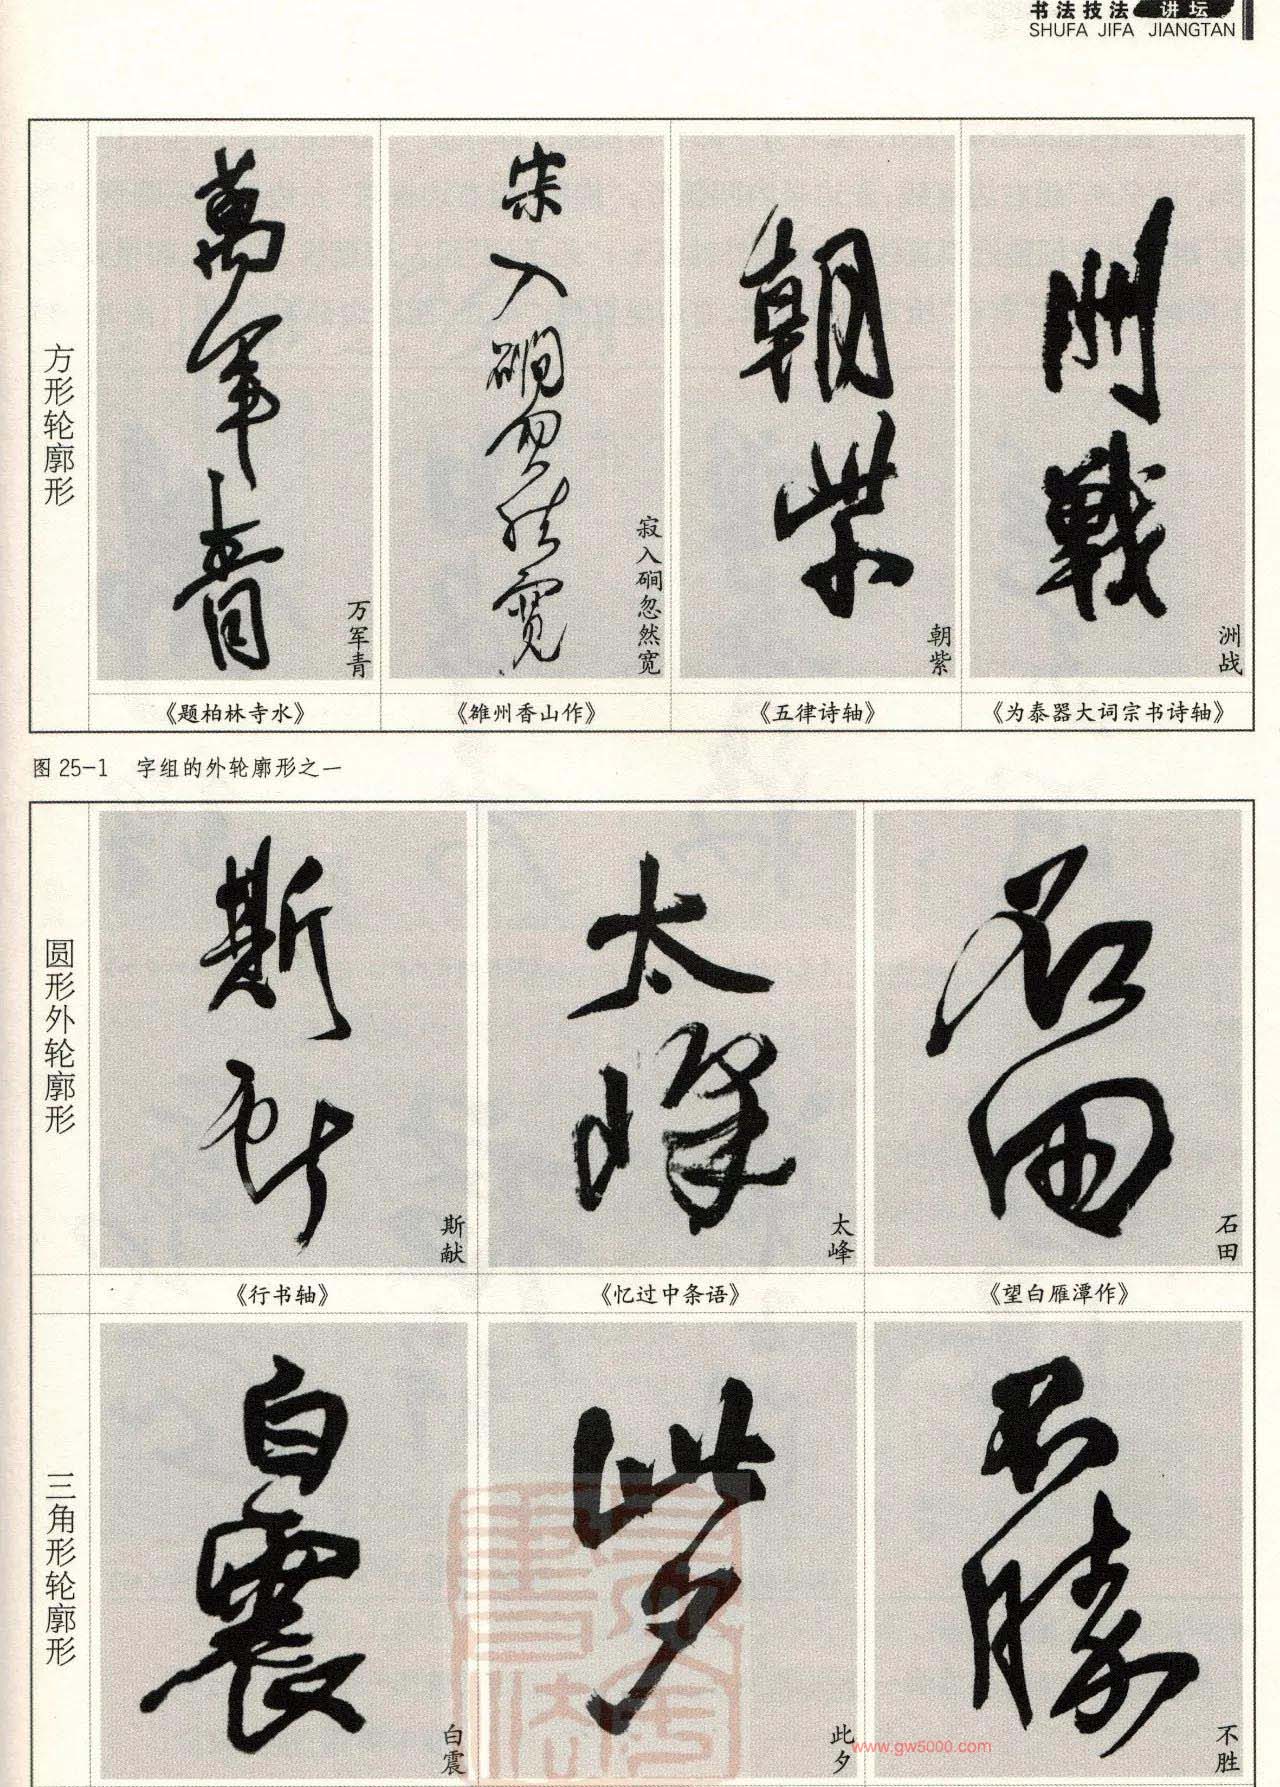 书法技法 讲坛
SHUFA JIFA JIANGTAN
方形轮廓形
萬军青
万军青
《题柏林寺水》
寂入硐忽然宽
寂入硐忽然宽
《雒州香山作》
朝紫
朝紫
《五律诗轴》
洲戰
洲战
《为泰器大词宗书诗轴》
图 25-1 字组的外轮廓形之一
圆形外轮廓形
斯献
斯献
《行书轴》
太峰
太峰
《忆过中条语》
石田
石田
《望白雁潭作》
三角形轮廓形
白震
白震
此夕
此夕
不勝
不胜
www.gw5000.com